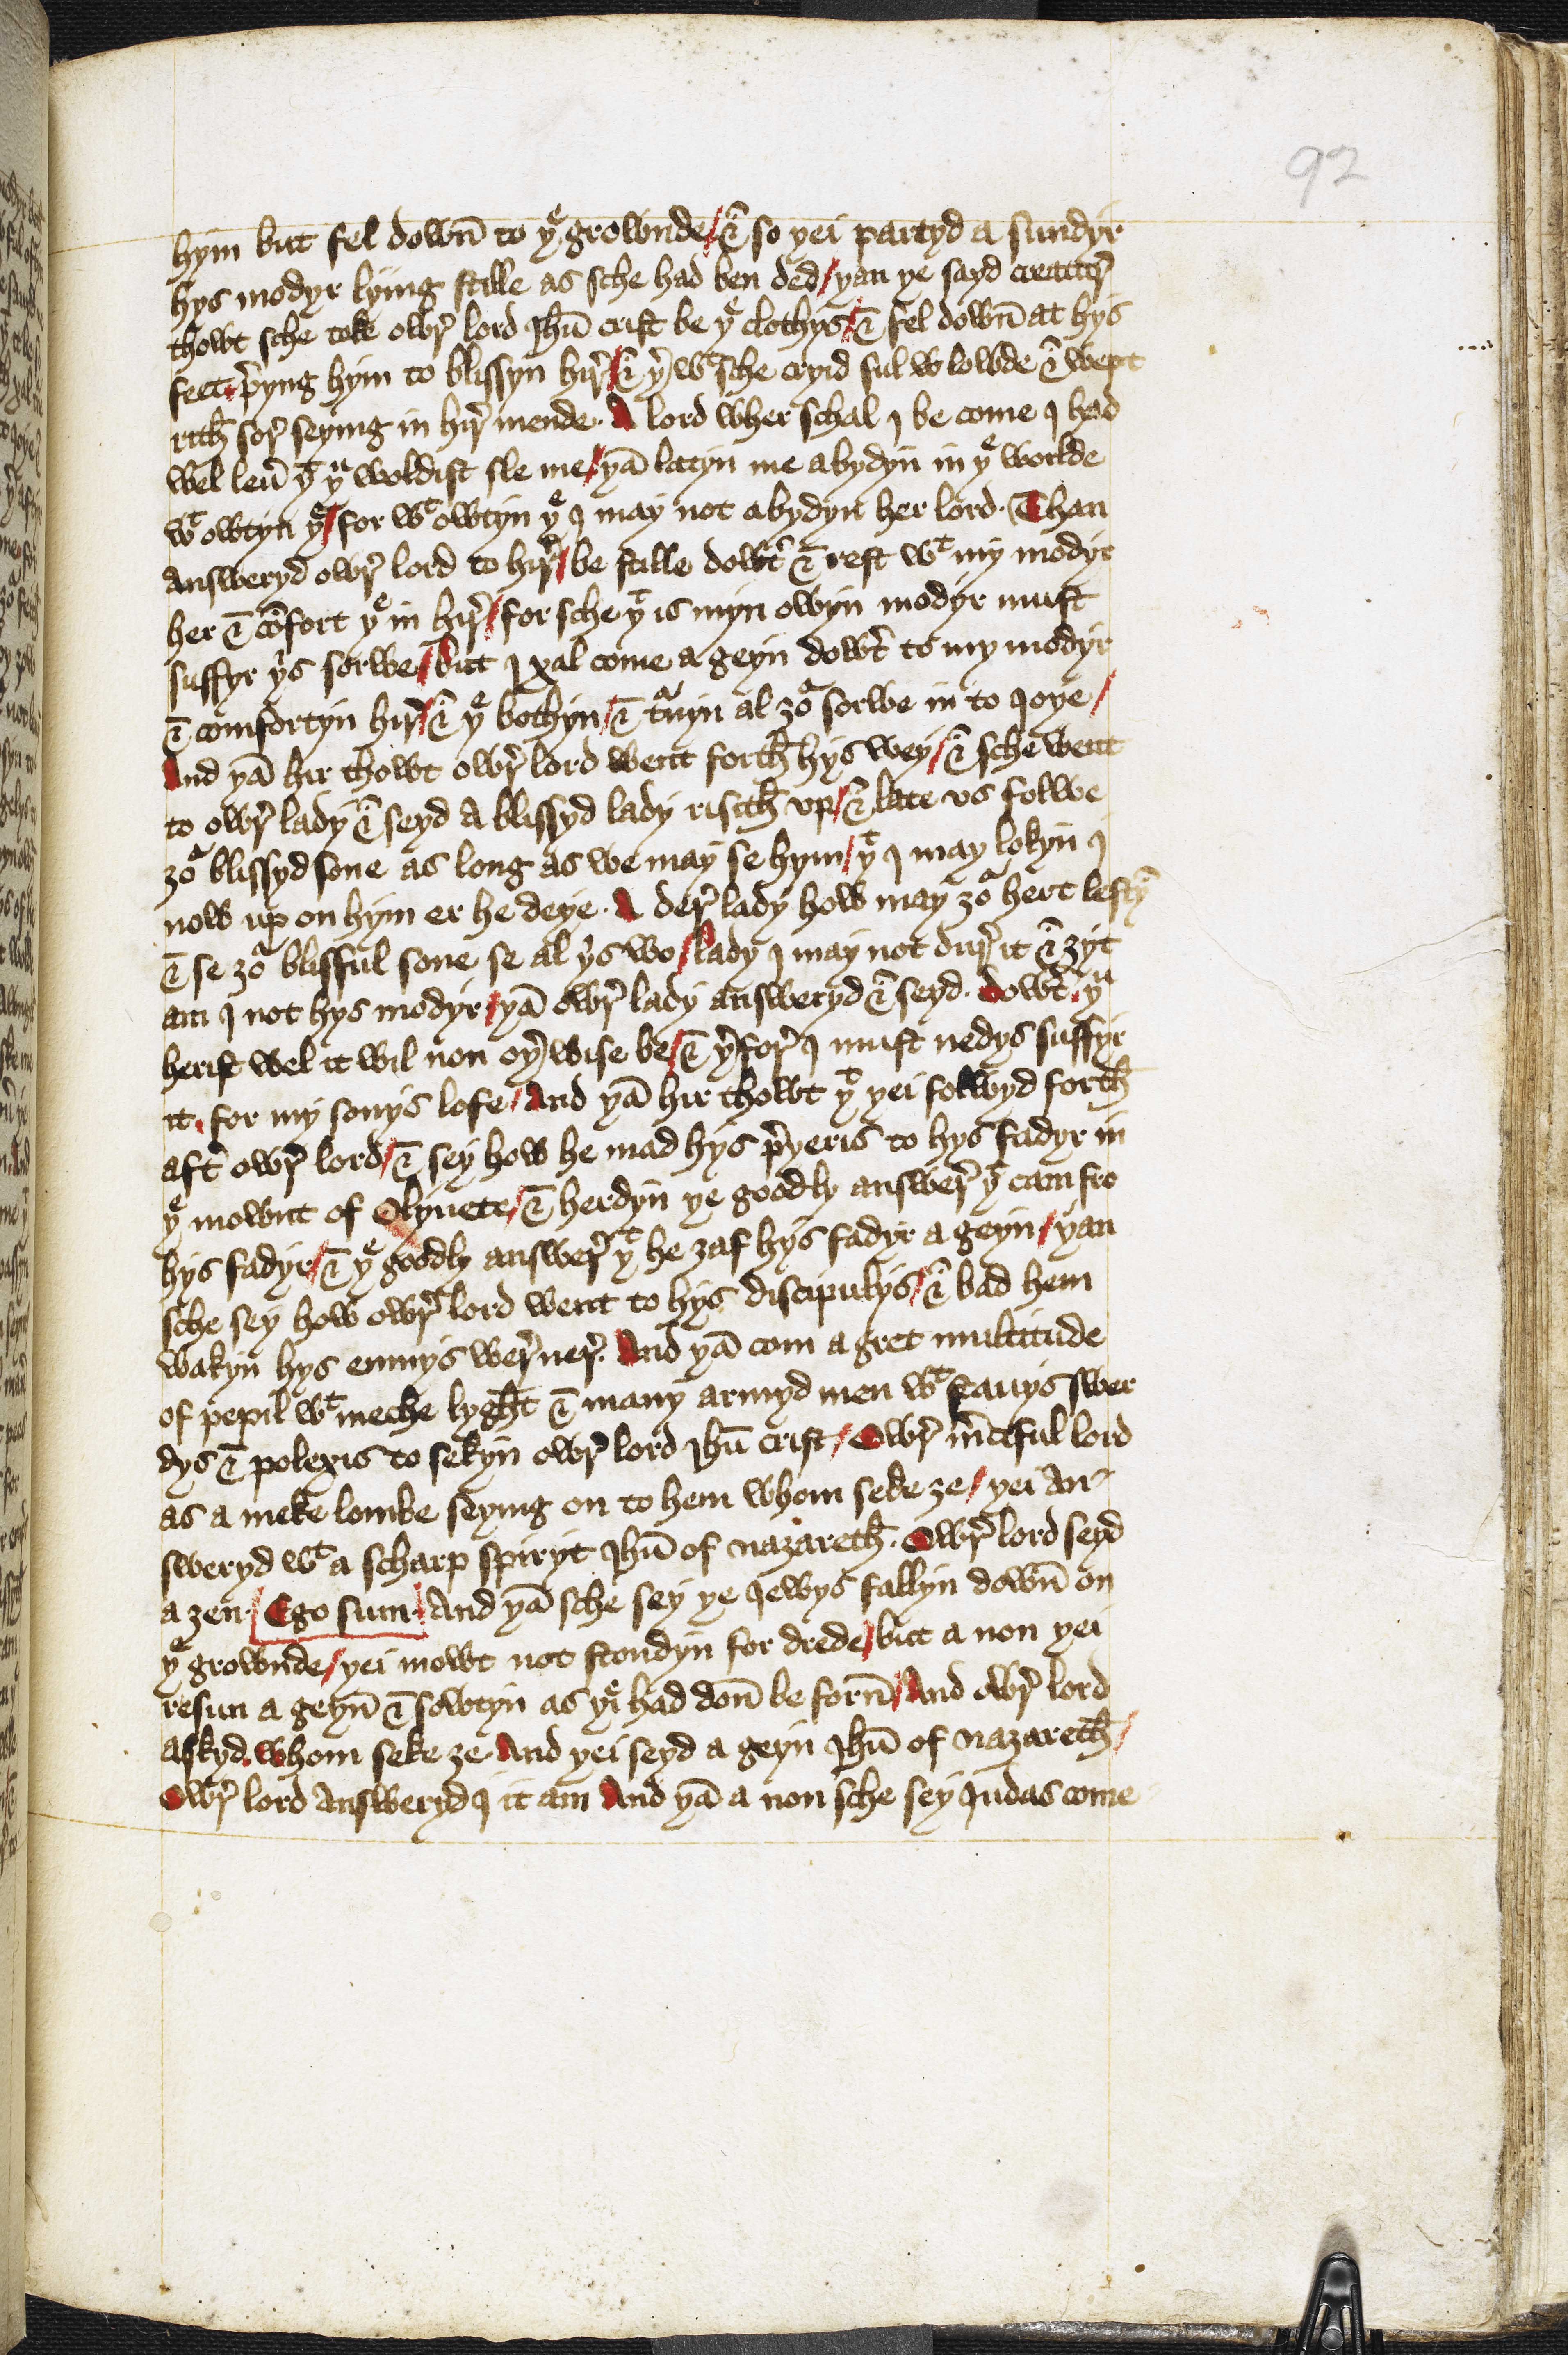 92
hym but fel down̄ to yͤ grownde / & so yei partyd a sundyr
hys modyr lying stille as sche had ben ded / yan ye sayd creatur̛
thowt sche toke owr̛ lord Jhū crist be yͤ clothys / & fel down̄ at hys
feet p̛yng hym to blissyn hir̛ / & y̛ wᵗ sche cryid ful w lowde & wept
rith sor̛ seying in hir̛ mende . A lord wher schal I be come I had
wel leư yᵗ yᵘ woldist sle me / yā latyn me abydyn in yͤ worlde
wᵗ owtyn yͤ / for wᵗ owtyn yͤ I may not abydyn her lord . Than
answeryd owr̛ lord to hir̛ / be stille dowt̛ & rest wᵗ my modyr
her & cōfort yͤ in hir̛ / for sche yᵗ is myn owyn modyr must
suffyr y̛s sorwe / but I xal come a geyn dowt̛ to my modyr
& comfortyn hir̛ / & yͤ bothyn / & tᵘnyn al ȝoᵘ sorwe in to Joye /
And yā hir thowt owr̛ lord went forth hys wey / & sche went
to owr̛ lady & seyd A blissyd lady risith vp / & late vs folwe
ȝoᵘ blissyd sone as long as we may se hym / yᵗ I may lokyn I
now up on hym er he deye . A der̛ lady how may ȝoᵘ hert lesty̛
& se ȝoᵘ blisful sone se al y̛s wo / lady I may not dur̛ it & ȝyt
am I not hys modyr / yā owr̛ lady answeryd & seyd . dowt̛ yᵘ
herist wel it wil non oy̛ wise be / & y̛for̛ I must nedys suffyr
it . for my sonys lofe / And yā hir thowt yᵗ yei folwyd forth
aft̛ owr̛ lord / & sey how he mad hys p̛yeris to hys fadyr in
yͤ mownt of Olyuete / & herdyn ye goodly answer̛ yᵗ cam fro
hys fadyr / & yͤ goodly answer̛ yᵗ he ȝaf hys fadyr a geyn / yan
sche sey how owr̛ lord went to hys discipulys / & bad hem
wakyn hys enmys wer̛ ner̛ . And yā com a gret multitude
of pepil wᵗ meche lyght & many armyd men wᵗ stauys swer
dys & polexis to sekyn owr̛ lord Jhū crist / Owr̛ m̛ciful lord
as a meke lombe seying on to hem whom seke ȝe / yei an
sweryd wᵗ a scharp spiryt Jhū of nazareth . Owr̛ lord seyd
a ȝen . / Ego sum . / And yā sche sey ye Jewys fallyn down̄ on
yͤ grownde / yei mowt not stondyn for drede / but a non yei
resun a geyn̄ & sowtyn as yⁱ had don̄ be forn̄ / And owr̛ lord
askyd . whom seke ȝe . And yei seyd a geyn Jhū of nazareth /
Owr̛ lord answeryd I it am And yā a non sche sey Judas come